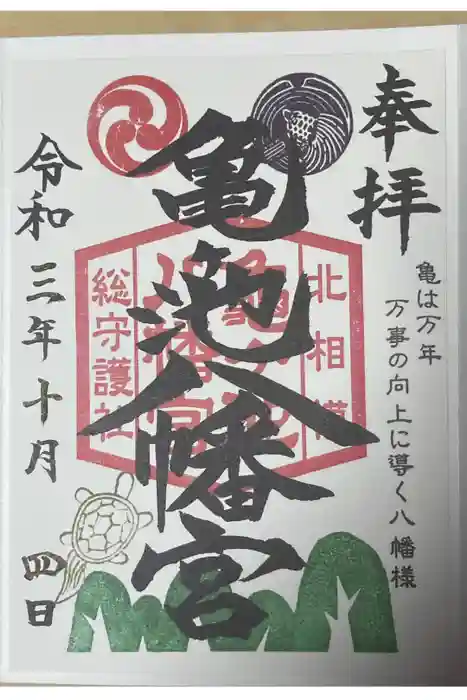 奉拝
亀は万年
万事の向上に導く八幡様
北相模
亀池八幡宮
総守護社
令和三年十月四日